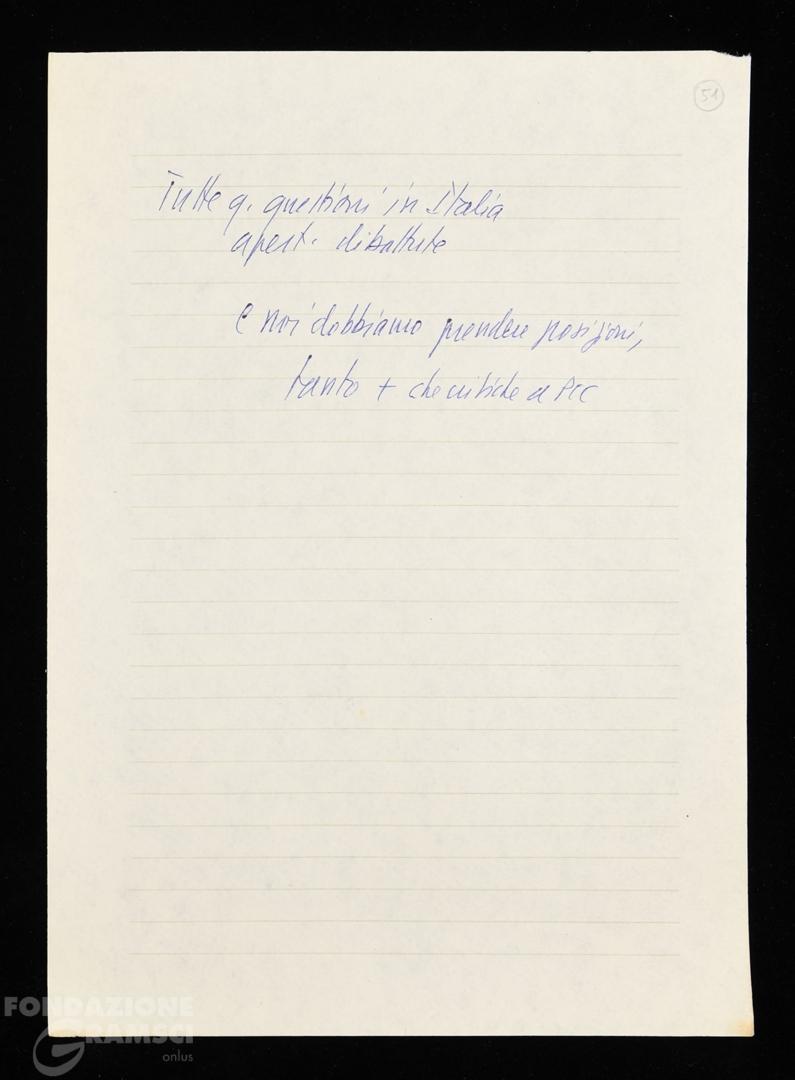 51
Tutte q. questioni in Italia
apert. dibattute
e noi dobbiamo prendere posizioni,
tanto + che critiche a PCC
FONDAZIONE
GRAMSCI
onlus